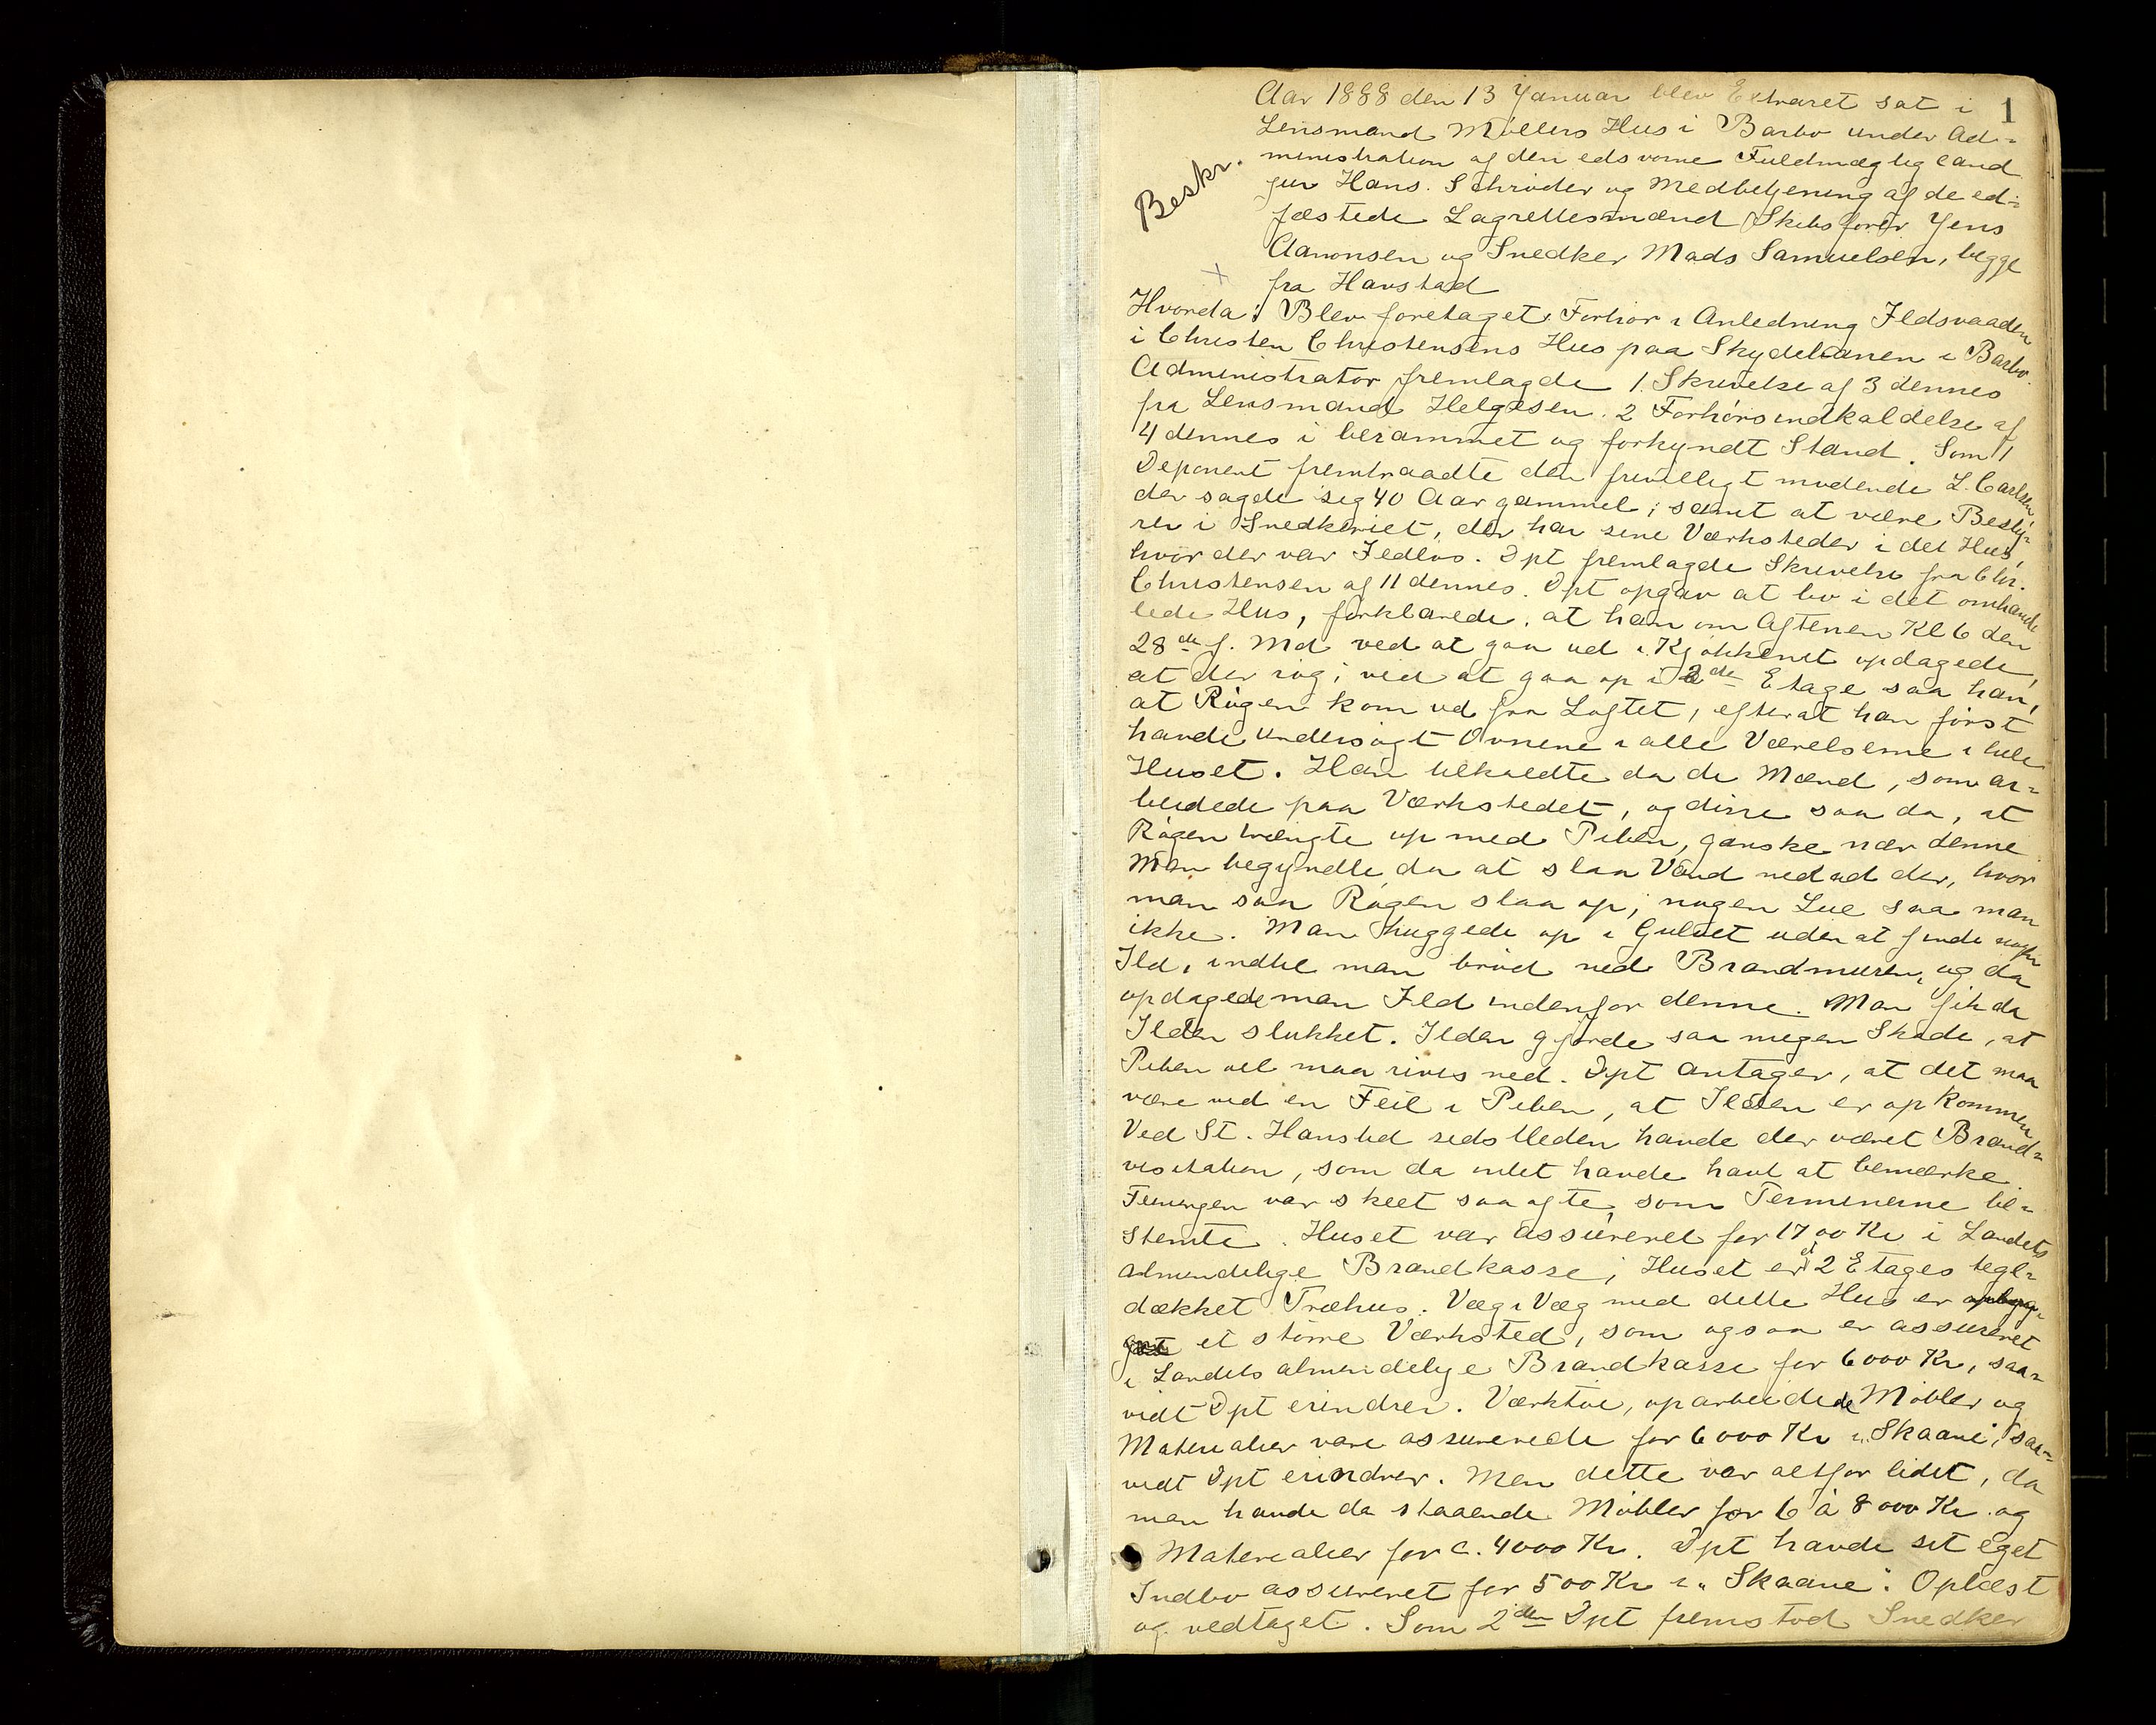 1
Aar 1888 den 13 Januar blev Extraret sat i
Lensmand Møllers Hus i Barbo under Ad-
ministration af den edsvorne Fuldmægtig cand
jur Hans. Schrøder og Medbetjening af de ed-
fæstede Lagrettesmænd Skibsfører Jens
Aanonsen og Snedker Mads Samuelsen, begge
fra Havstad
Beskr.
Hvorda: Blev foretaget Forhør i Anledning Ildsvaaden
i Christen Christensens Hus paa Skydebanen i Barbo.
Administrator fremlagde 1. Skrivelse af 3 dennes
fra Lensmand Helgesen. 2 Forhørsindkaldelse af
4 dennes i berammet og forkyndt Stand. Som 1
Deponent fremtraadte den frivilligt mødende L. Carlsen,
der sagde sig 40 Aar gammel; samt at være Besty-
rer i Snedkeriet, der har sine Værksteder i det Hus,
hvor der var Ildløs. Dpt fremlagde Skrivelse fra Chr.
Christensen af 11 dennes. Dpt opgav at bo i det omhand-
lede Hus, forklarede, at han om Aftenen Kl 6 den
28de f. Md ved at gaa ud i Kjøkkenet opdagede,
at der røg; ved at gaa op i 2de Etage saa han,
at Røgen kom ud fra Loftet, efterat han først
havde undersøgt Ovnene i alle Værelserne i hele
Huset. Han tilkaldte da de Mænd, som ar-
beidede paa Værkstedet, og disse saa da, at
Røgen trængte op med Piben, ganske nær denne
Man begyndte da at slaa Vand nedad der, hvor
man saa Røgen slaa op; nogen Lue saa man
ikke. Man huggede op i Gulvet uden at finde nogen
Ild, indtil man brød ned Brandmuren, og da
opdagede man Ild indenfor denne. Man fik da
Ilden slukket. Ilden gjorde saa megen Skade, at
Piben vel maa rives ned. Dpt antager, at det maa
være ved en Feil i Piben, at Ilden er opkommen
Ved St. Hanstid sidstleden havde der været Brand-
visitation, som da intet havde havt at bemærke.
Feiningen var skeet saa ofte, som Terminerne be-
stemte. Huset var assureret for 1700 Kr i Landets
almindelige Brandkasse; Huset er et 2 Etages tegl-
dækket Træhus. Væg i Væg med dette Hus er
et større Værksted, som ogsaa er assureret
i Landets almindelige Brandkasse for 6000 Kr, saa-
vidt Dpt erindrer. Værktøi, oparbeidede Møbler og
Materialier vare assurerede for 6000 Kr i „Skaane", saa-
vidt Dpt erindrer. Men dette var altfor lidet, da
man havde da staaende Møbler for 6 à 8000 Kr. og
Materialier for c. 4000 Kr. Dpt havde sit eget
Indbo assureret for 500 Kr i „Skaane". Oplæst
og vedtaget. Som 2den Dpt fremstod Snedker